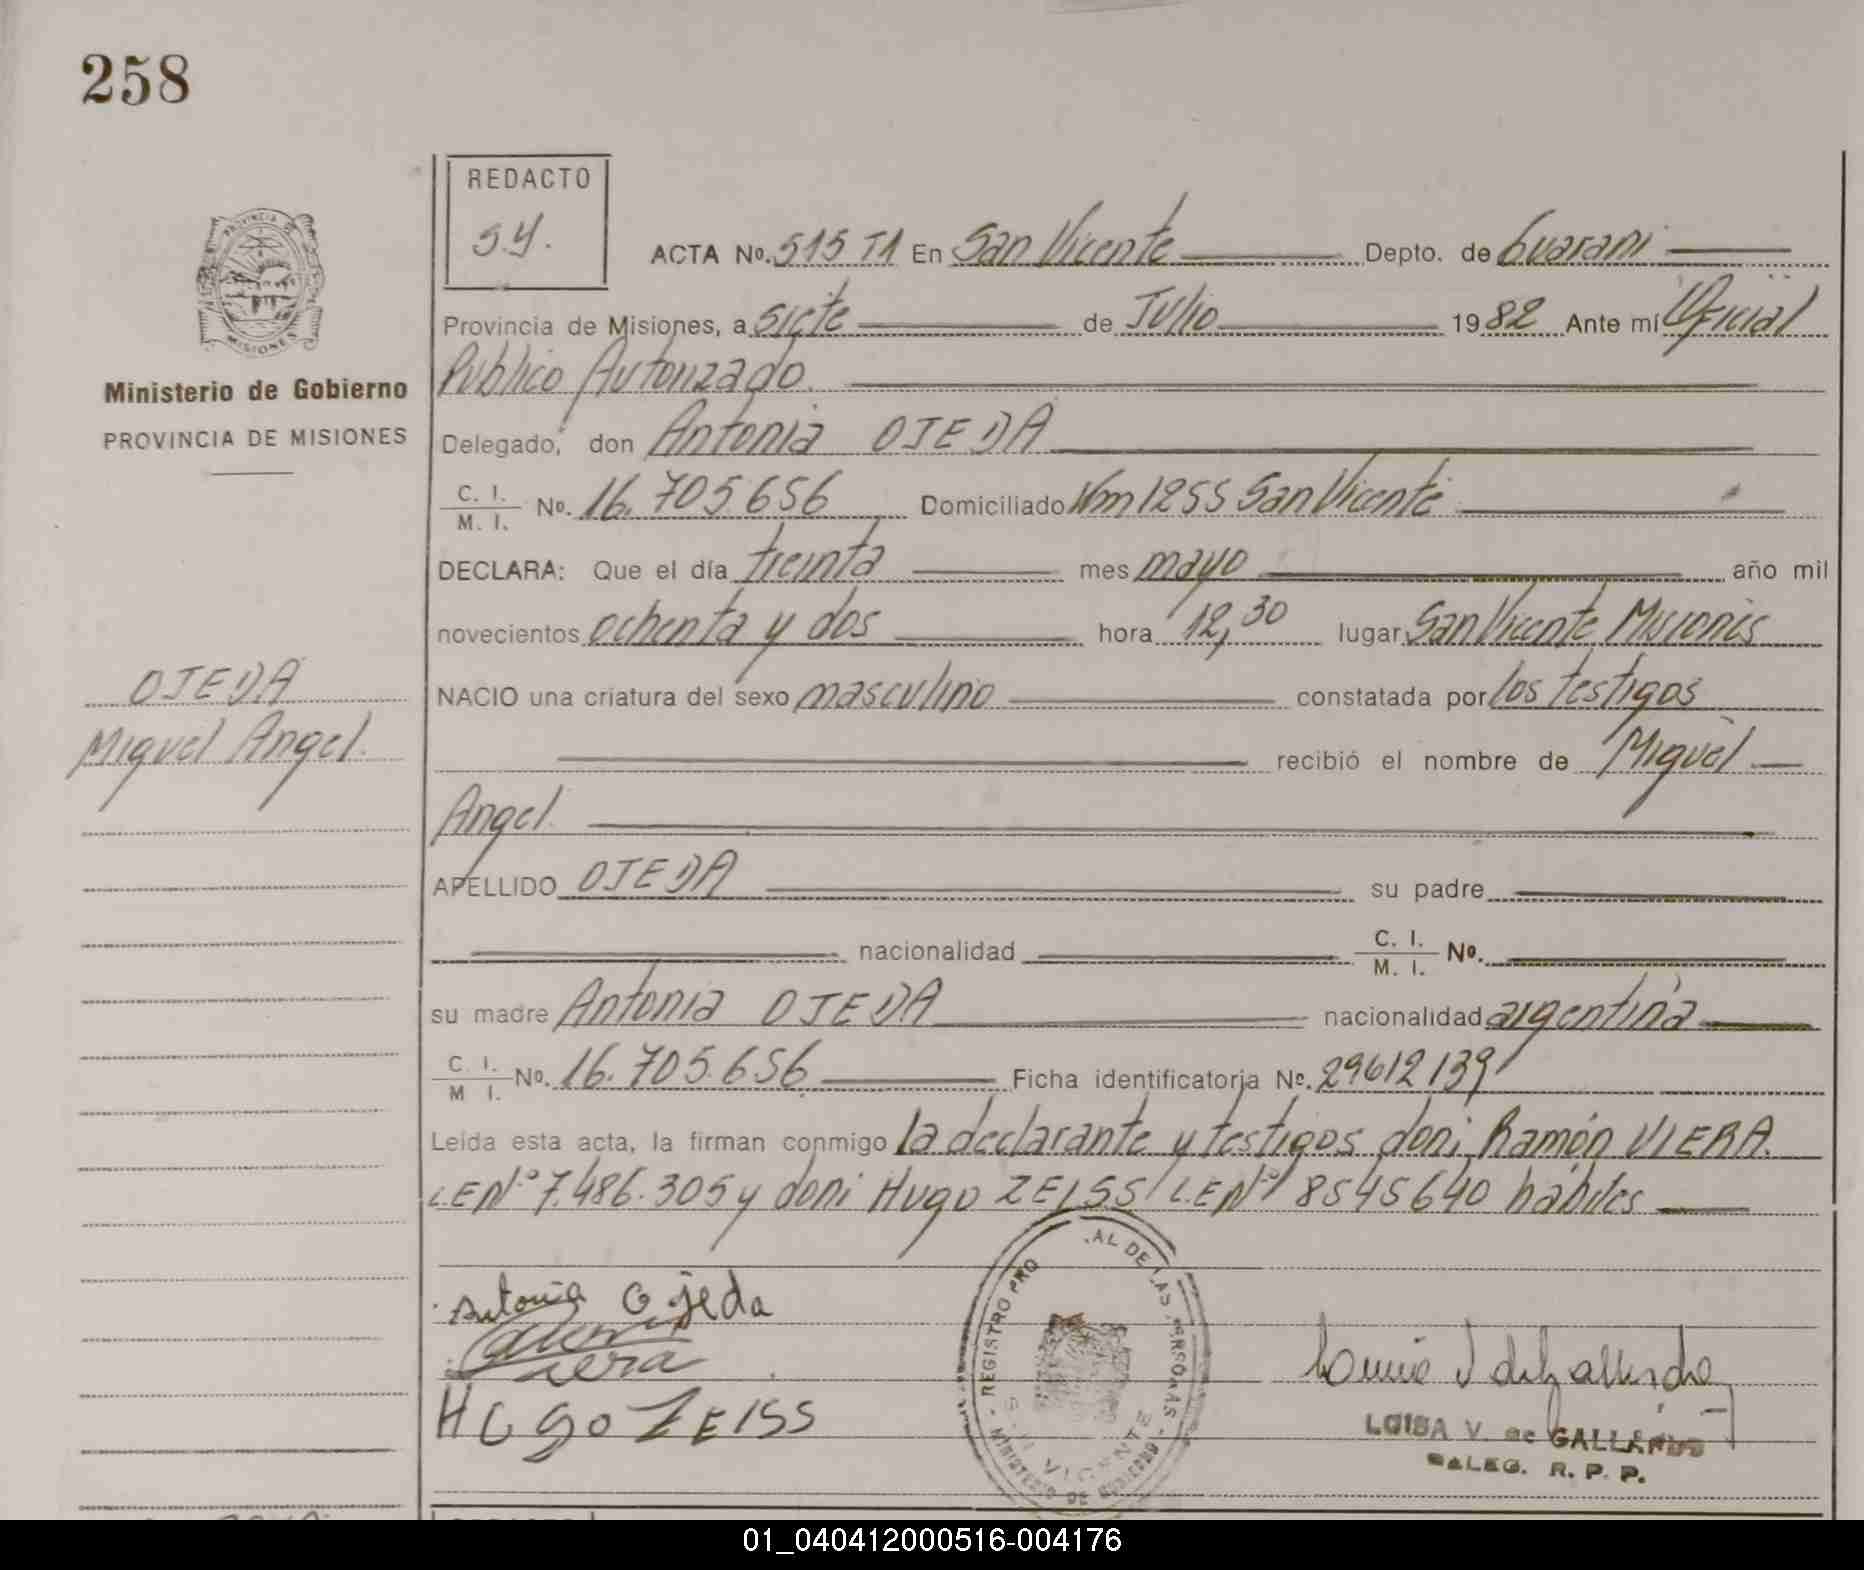 258
REDACTO
S.Y.
PROVINCIA DE
MISIONES
Ministerio de Gobierno
PROVINCIA DE MISIONES
ACTA No. 515 T1 En San Vicente Depto. de Guarani
Provincia de Misiones, a siete de Julio 1982 Ante mí Oficial
Publico Autorizado.
Delegado, don Antonia OJEDA
C. I. / M. I. No. 16.705.656 Domiciliado Km 1255 San Vicente
DECLARA: Que el día treinta mes mayo año mil
novecientos ochenta y dos hora 12,30 lugar San Vicente Misiones
OJEDA
Miguel Angel.
NACIO una criatura del sexo masculino constatada por los testigos
recibió el nombre de Miguel
Angel.
APELLIDO OJEDA su padre
nacionalidad C. I. / M. I. No.
su madre Antonia OJEDA nacionalidad argentina
C. I. / M I. No. 16.705.656 Ficha identificatoria No. 29612139
Leída esta acta, la firman conmigo la declarante y testigos don: Ramón VIERA.
L.E Nº 7.486.305 y don: Hugo ZEISS L.E Nº 8545640 hábiles
Antonia Ojeda
Viera
HUgo ZEISS
REGISTRO PRO AL DE LAS PERSONAS
MINISTERIO DE GOBIERNO
VICENTE
LUISA V. de GALLARDO
DELEG. R. P. P.
01_040412000516-004176